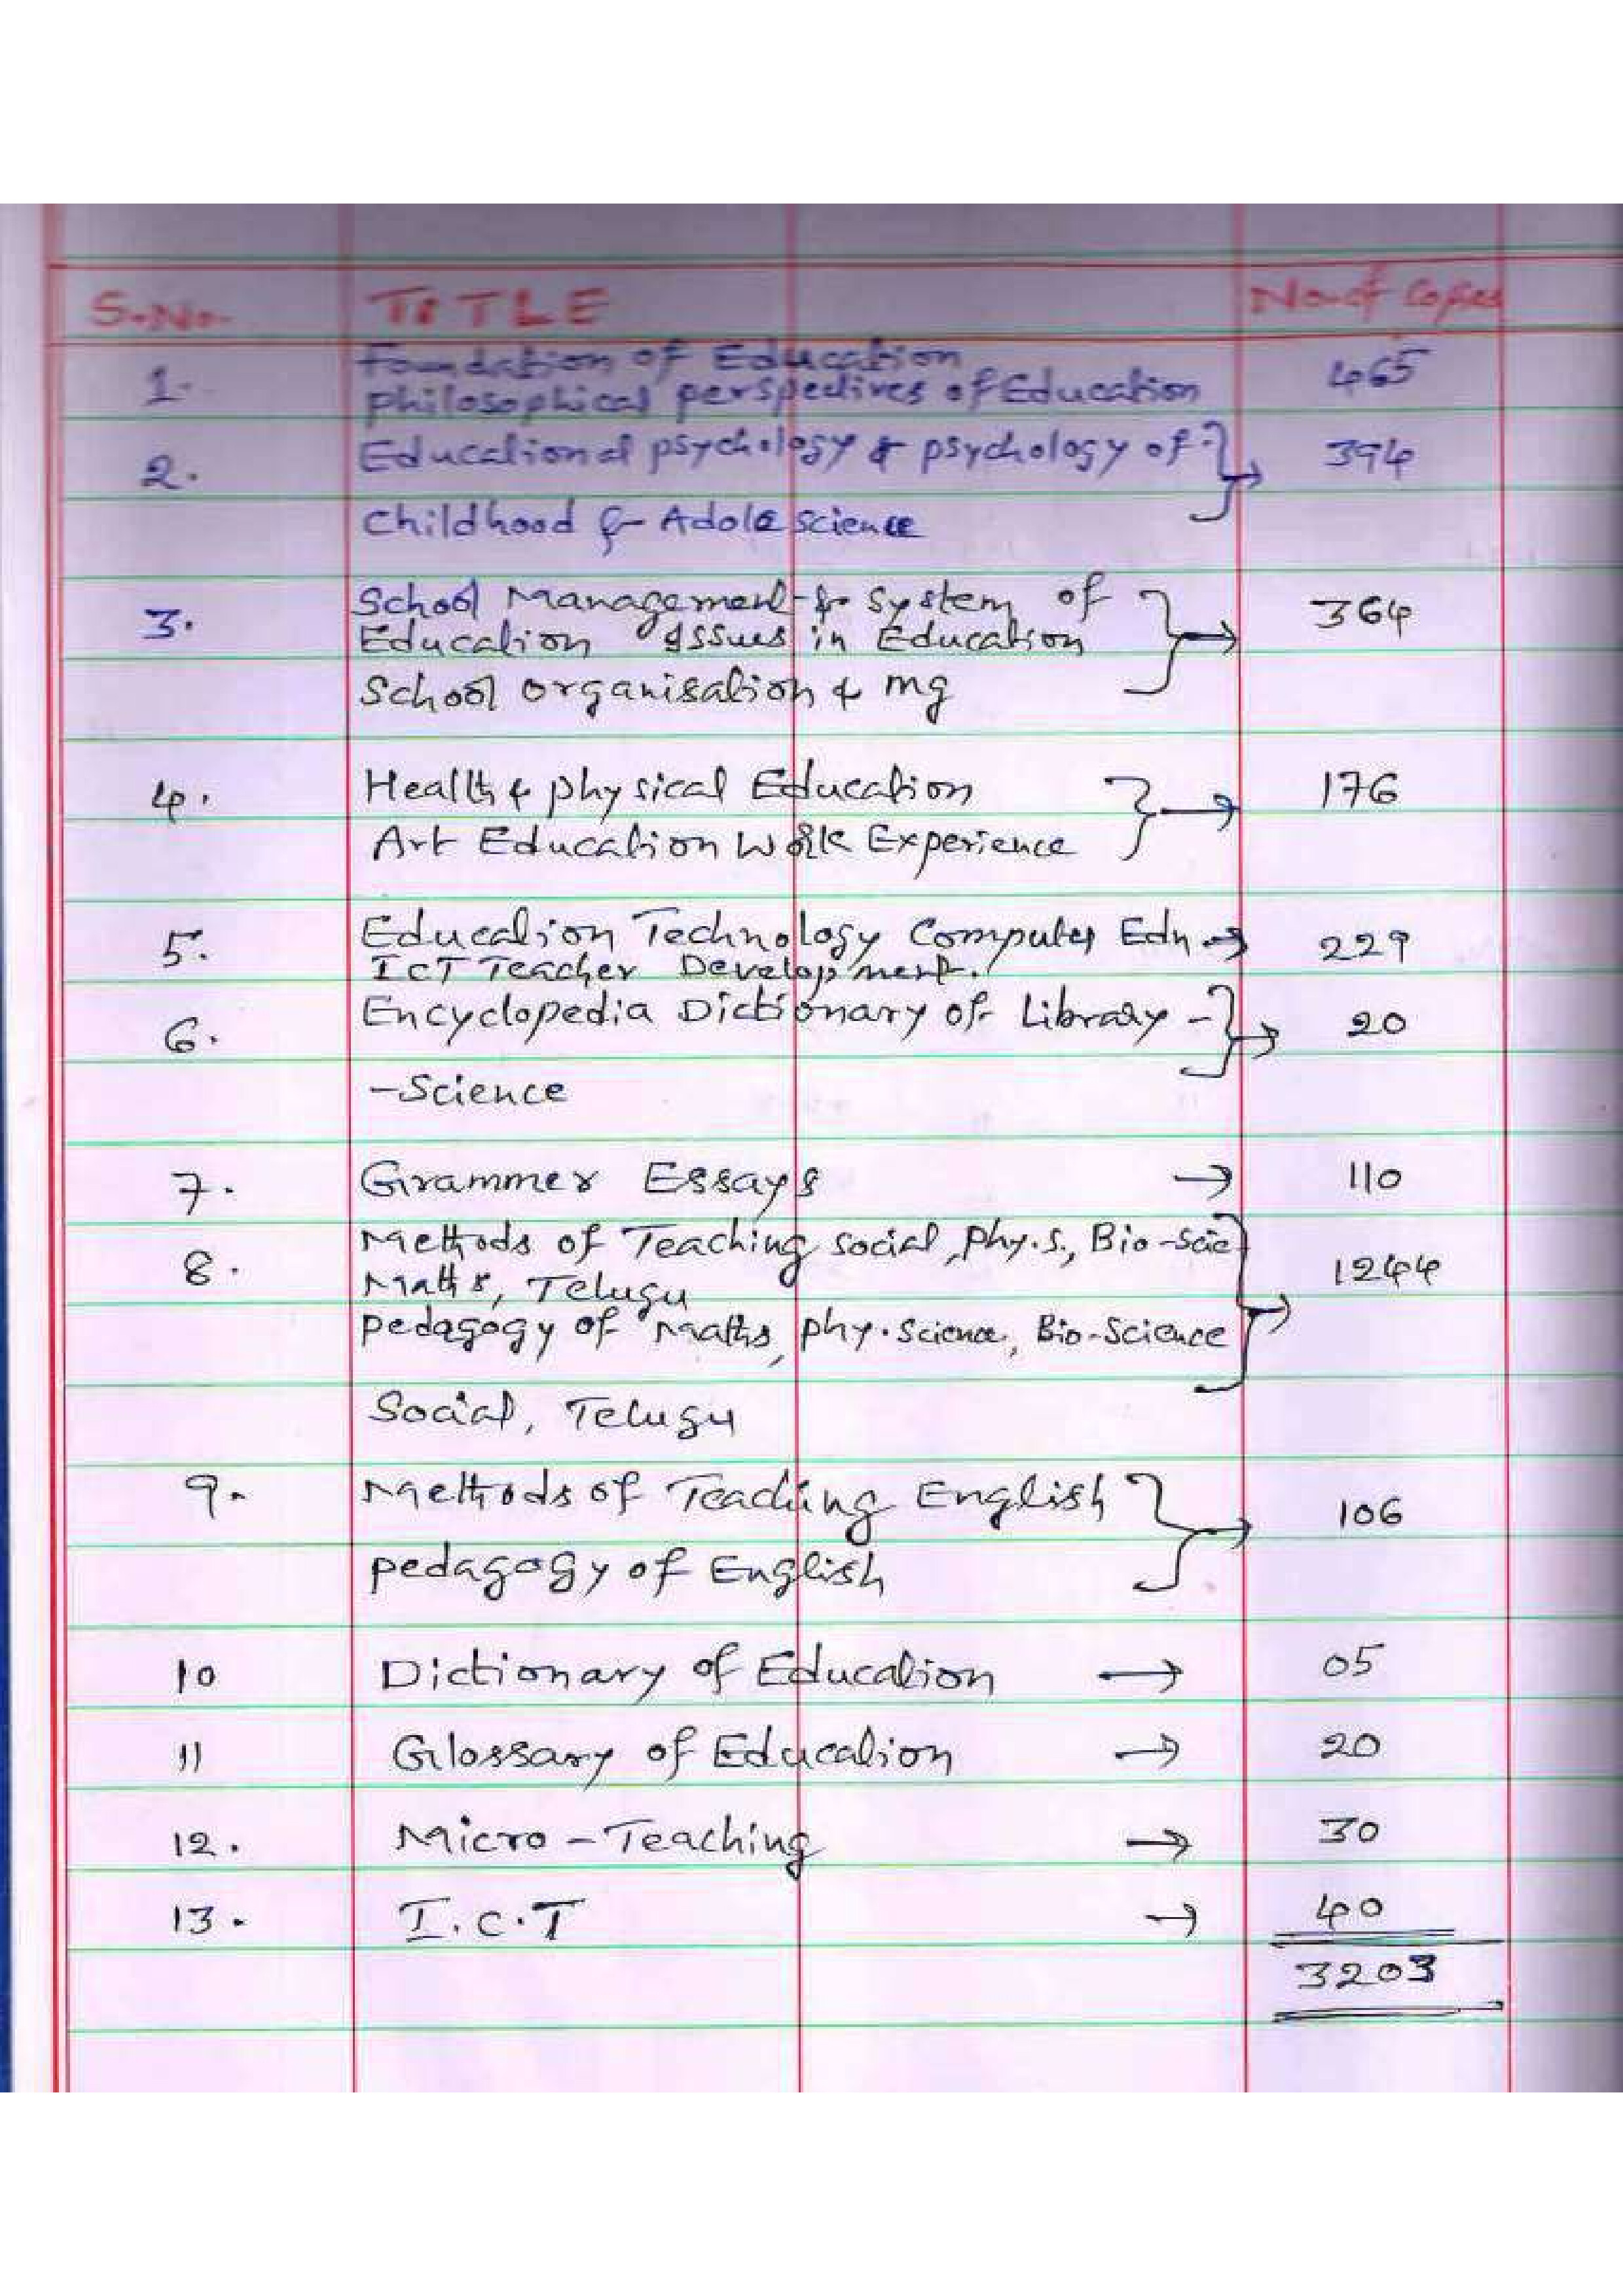 S.No. TITLE No. of Copies
Foundation of Education
1. philosophical perspectives of Education 465
2. Educational psychology & psychology of → 394
Childhood & Adolescience
School Management & System of
3. Education Issues in Education → 364
School organisation & mg
4. Health & physical Education → 176
Art Education Work Experience
5. Education Technology Computer Edn → 229
ICT Teacher Development.
6. Encyclopedia Dictionary of Library - → 20
-Science
7. Grammer Essays → 110
Methods of Teaching social, phy.s., Bio-Scie
8. Maths, Telugu → 1244
pedagogy of Maths, phy.Science, Bio-Science
Social, Telugu
9. Methods of Teaching English → 106
pedagogy of English
10 Dictionary of Education → 05
11 Glossary of Education → 20
12. Micro-Teaching → 30
13. I.C.T → 40
3203